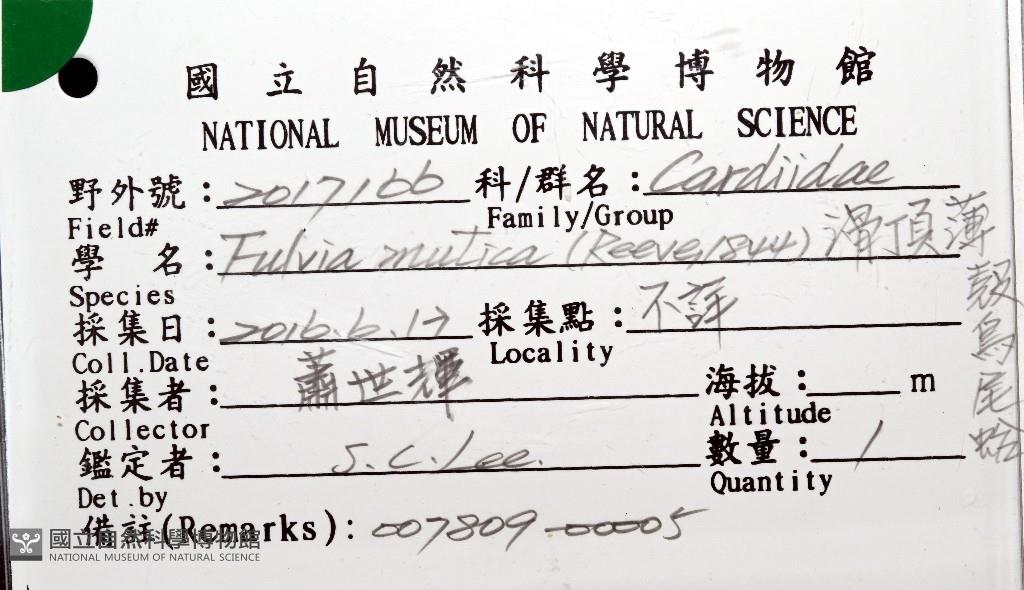 國立自然科學博物館
NATIONAL MUSEUM OF NATURAL SCIENCE
野外號：2017166 科/群名：Cardiidae
Field# Family/Group
學 名：Fulvia mutica (Reeve, 1844) 滑頂薄殼鳥尾蛤
Species
採集日：2016.6.17 採集點：不詳
Coll.Date Locality
採集者：蕭世輝 海拔： m
Collector Altitude
鑑定者：S.C.Lee. 數量：1
Det.by Quantity
備註(Remarks)：007809-00005
國立自然科學博物館
NATIONAL MUSEUM OF NATURAL SCIENCE